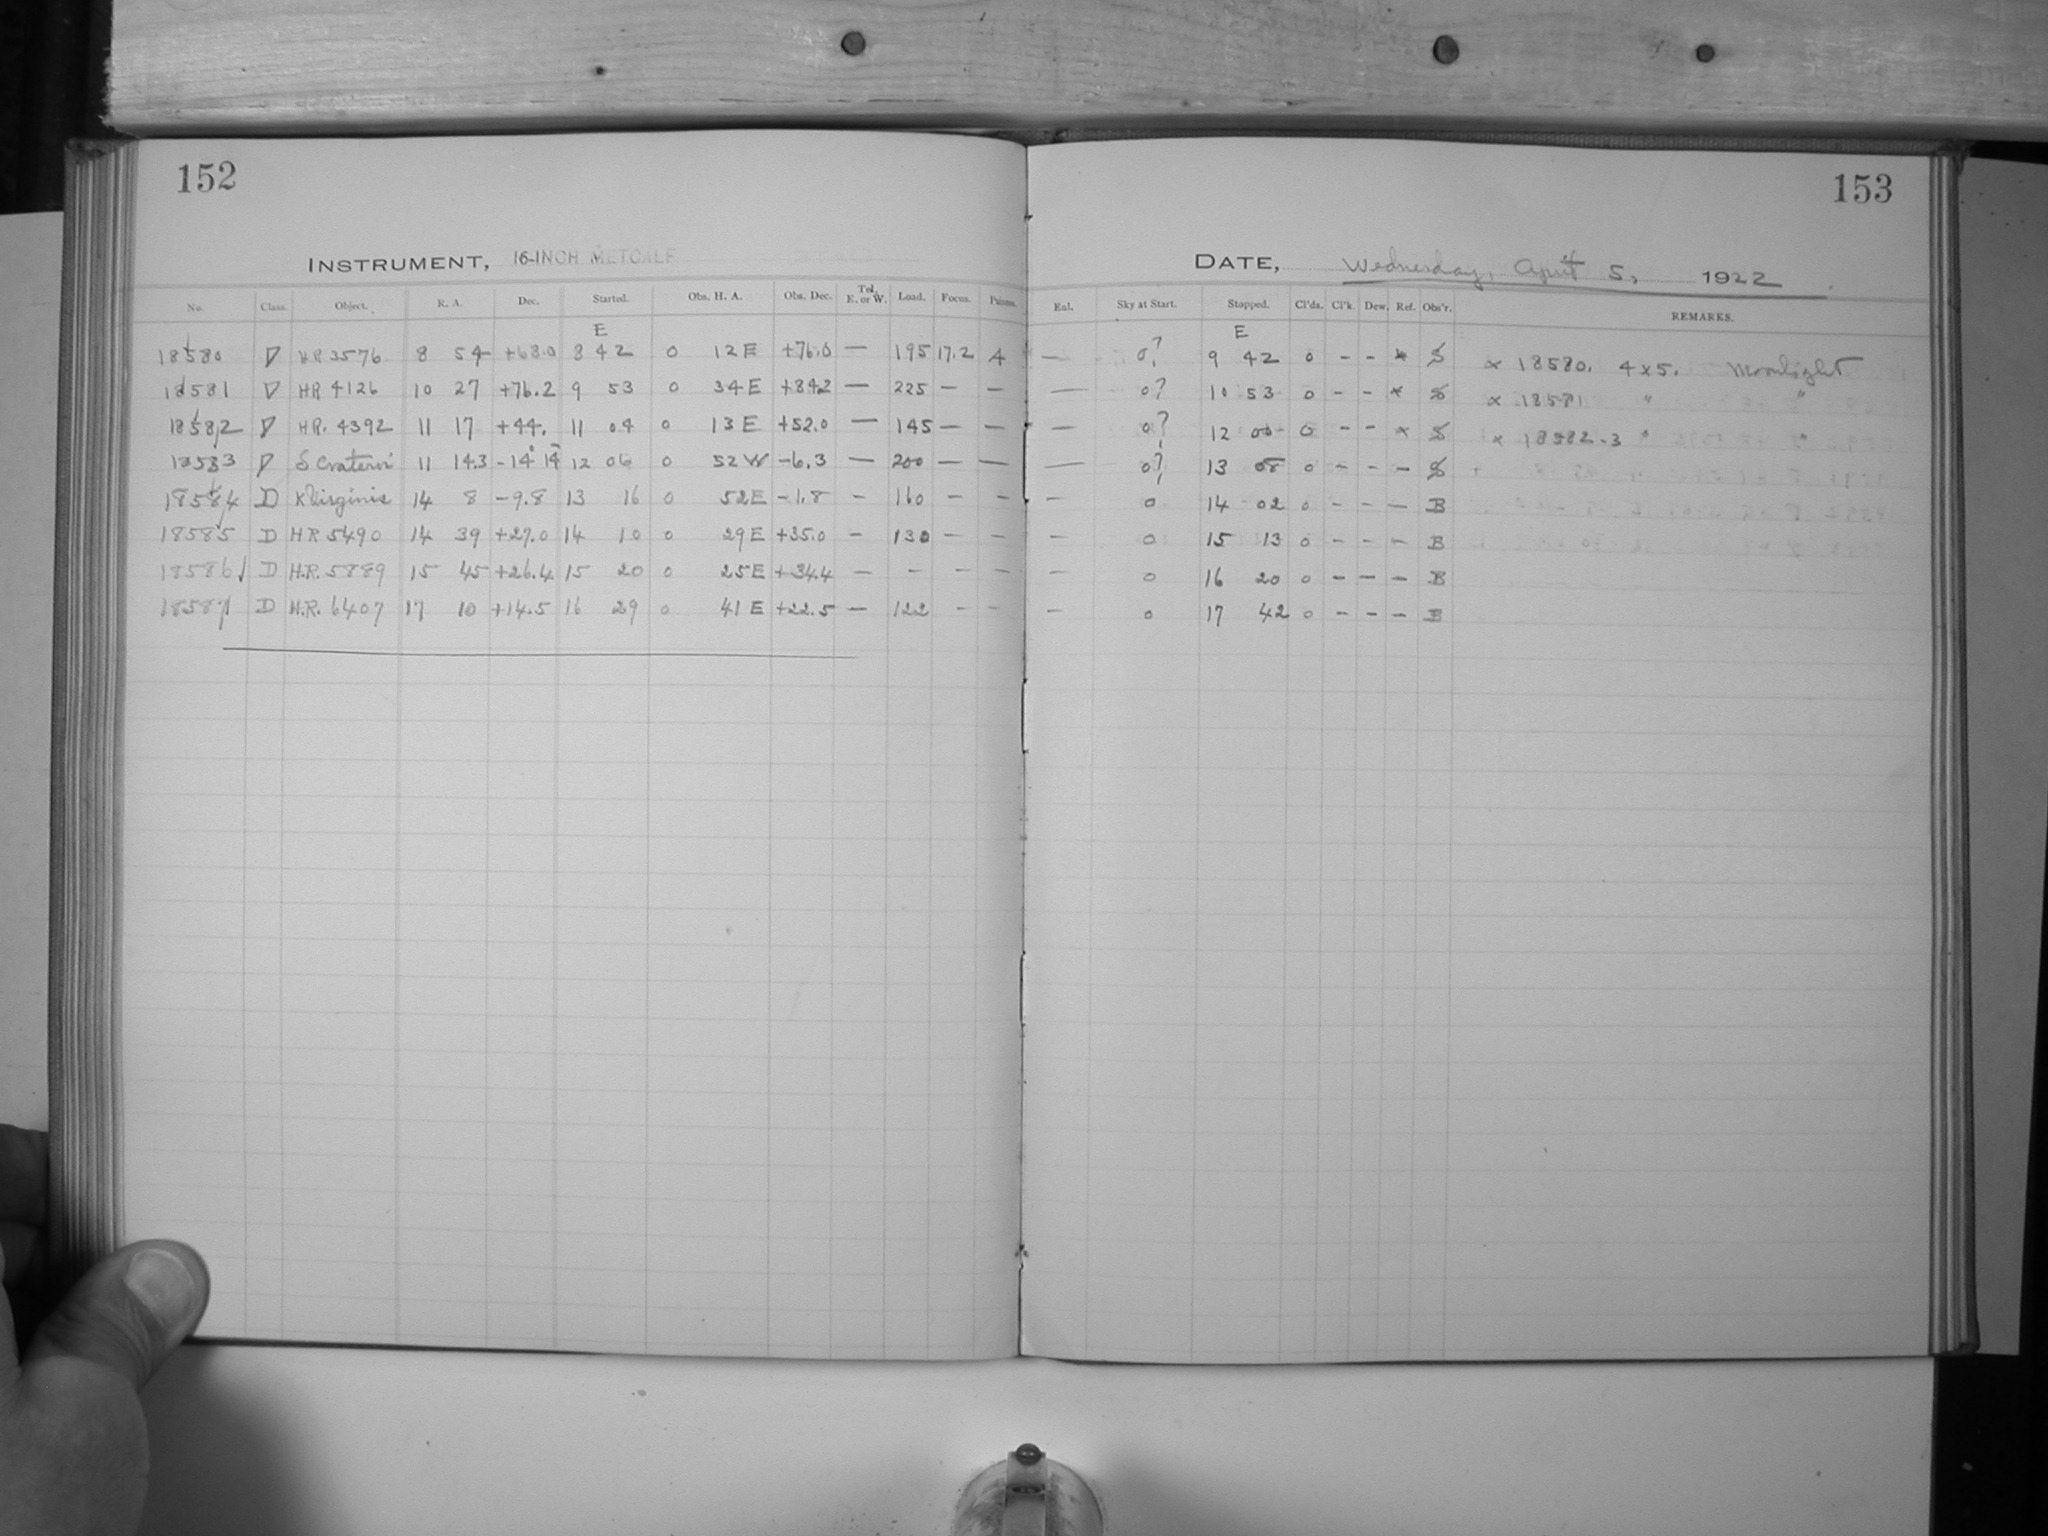 152
153
INSTRUMENT, 16-INCH METCALF
DATE, Wednesday, April 5, 1922
No. Class. Object. R. A. Dec. Started. Obs. H. A. Obs. Dec. Tel. E. or W. Load. Focus. Enl. Sky at Start. Stopped. Cl'ds. Cl'k. Dew. Ref. Obs'r. REMARKS.
E E
18580 D H.R. 3576 8 54 +68.0 8 42 0 12 E +76.0 — 195 17.2 A — 0? 9 42 0 - - * S × 18580. 4 x 5. Moonlight
18581 D HR 4126 10 27 +76.2 9 53 0 34 E +84.2 — 225 — — — 0? 10 53 0 - - * S × 18581 " "
18582 D HR. 4392 11 17 +44. 11 04 0 13 E +52.0 — 145 — — — 0? 12 00 0 - - × S × 18582-3 " "
18583 D δ Crateris 11 14.3 -14° 14 12 06 0 52 W -6.3 — 200 — — — 0? 13 08 0 - - - S
18584 D κ Virginis 14 8 -9.8 13 16 0 52 E -1.8 - 160 - - - 0 14 02 0 - - - B
18585 D HR 5490 14 39 +27.0 14 10 0 29 E +35.0 - 130 - - - 0 15 13 0 - - - B
18586 D H.R. 5889 15 45 +26.4 15 20 0 25 E +34.4 - - - - - 0 16 20 0 - - - B
18587 D H.R. 6407 17 10 +14.5 16 29 0 41 E +22.5 - 122 - - - 0 17 42 0 - - - B